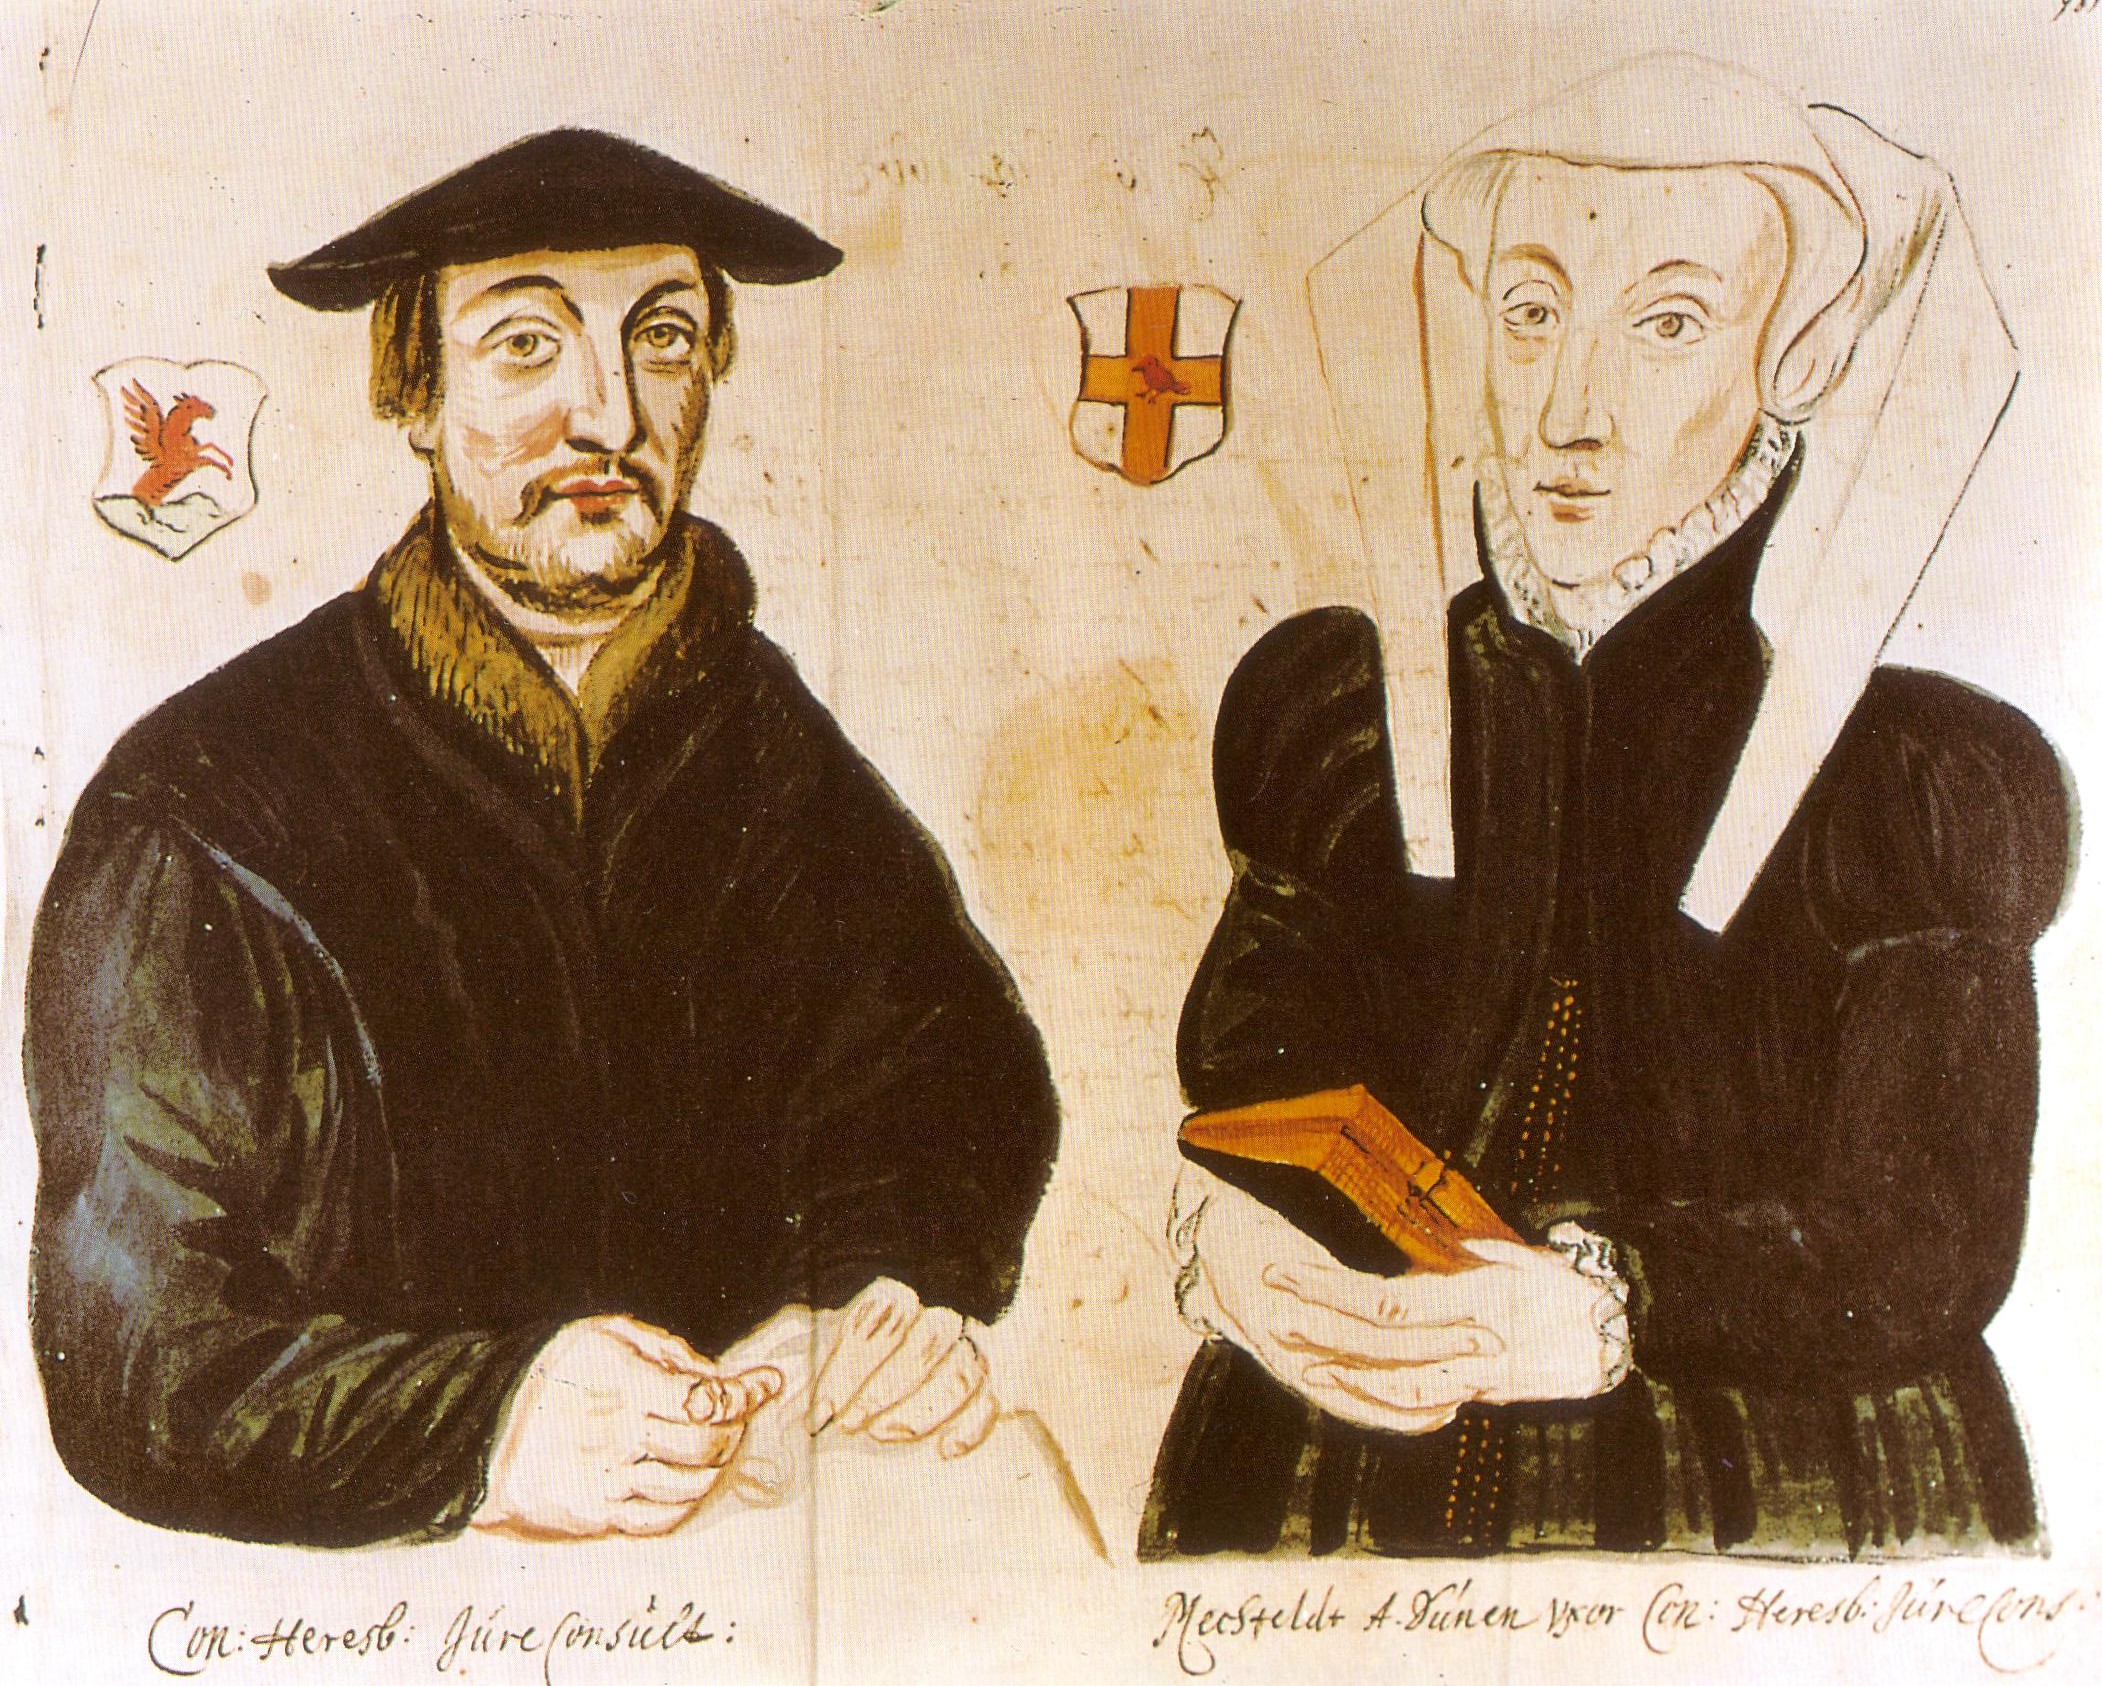 Con: Heresb: Júre Consúlt:
Mechteldt A. Dúnen Vxor Con: Heresb: Júre Cons: